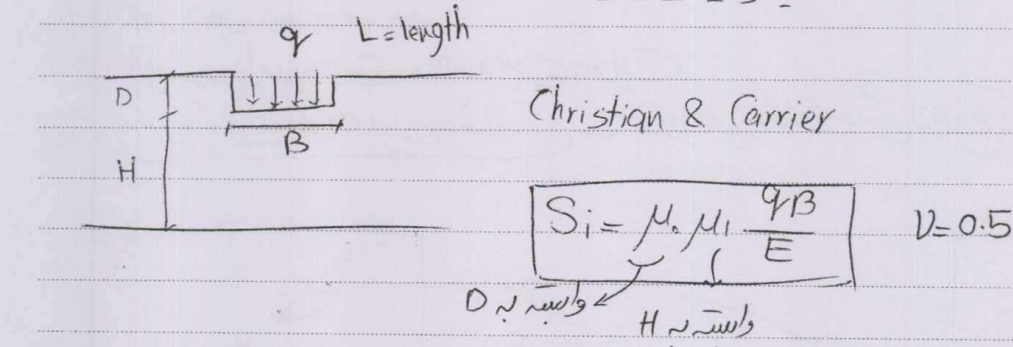 q L = length
D
B
H
Christian & Carrier
Si = μ₀ μ₁ qB/E ν = 0.5
وابسته به D
وابسته به H